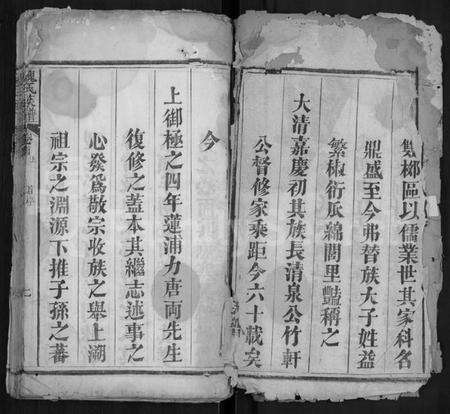 鄕區以儒業世其家科名
鼎盛至今弗替族大子姓益
繁椒衍瓜綿閭里豔稱之
大清嘉慶初其族長清泉公竹軒
公督修家乘距今六十載矣
今
上御極之四年蓮浦力唐兩先生
復修之蓋本其繼志述事之
心發爲敬宗收族之舉上溯
祖宗之淵源下推子孫之蕃
氏族譜